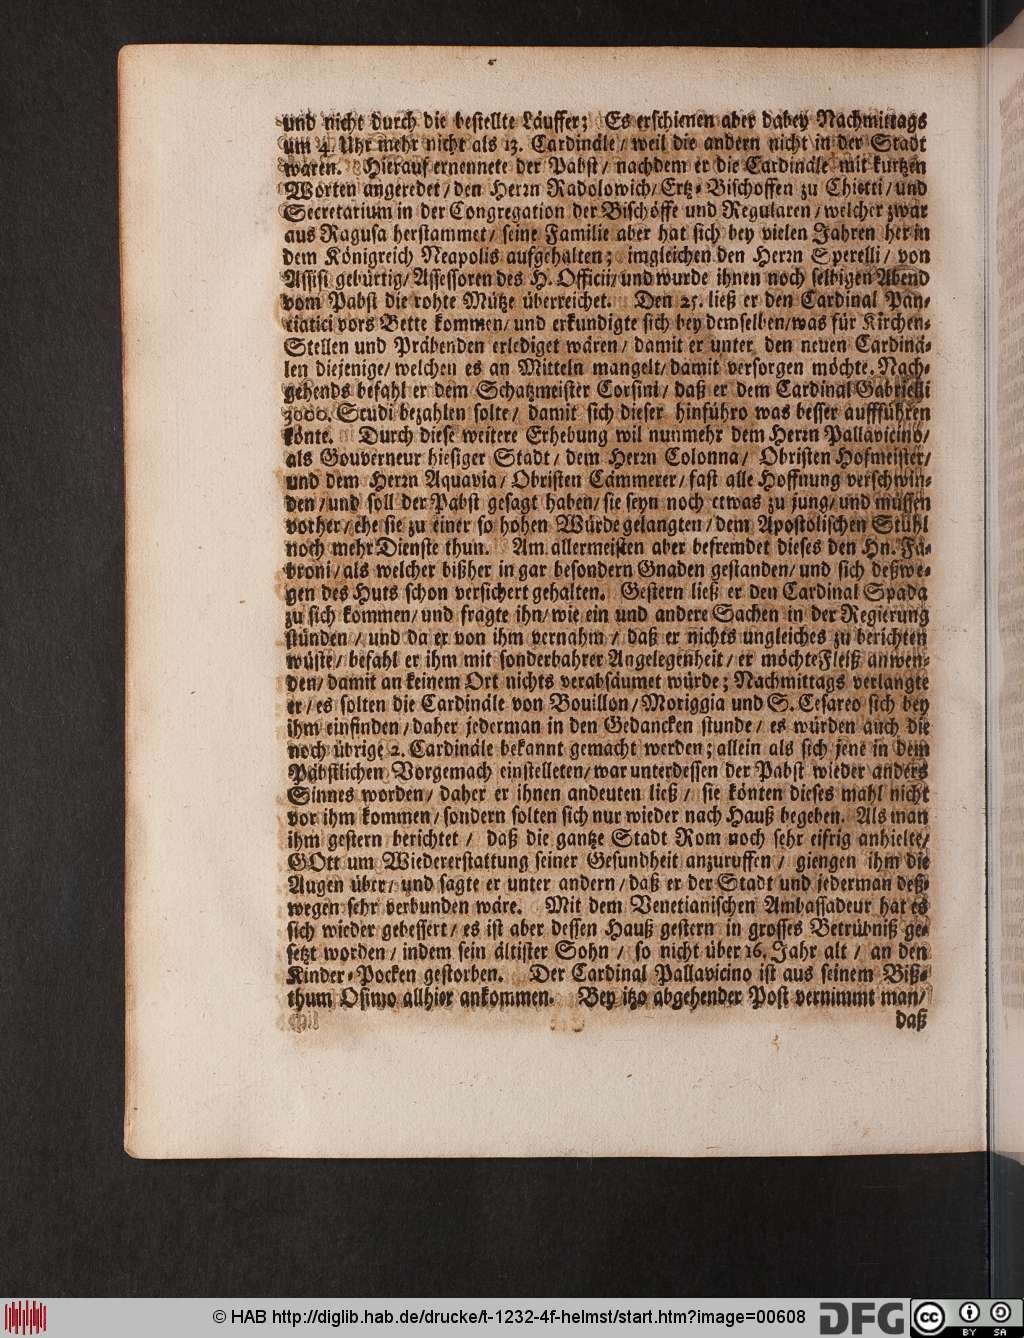 und nicht durch die bestellte Läuffer; Es erschienen aber dabey Nachmittags
um 4. Uhr mehr nicht als 13. Cardinäle/ weil die andern nicht in der Stadt
waren. Hierauf ernennete der Pabst/ nachdem er die Cardinäle mit kurtzen
Worten angeredet/ den Herrn Radolowich/ Ertz-Bischoffen zu Chietti/ und
Secretarium in der Congregation der Bischöffe und Regularen/ welcher zwar
aus Ragusa herstammet/ seine Familie aber hat sich bey vielen Jahren her in
dem Königreich Neapolis aufgehalten; imgleichen den Herrn Sperelli/ von
Assisi gebürtig/ Assessoren des H. Officii/ und wurde ihnen noch selbigen Abend
vom Pabst die rohte Mütze überreichet. Den 25. ließ er den Cardinal Pan-
ciatici vors Bette kommen/ und erkundigte sich bey demselben/ was für Kirchen-
Stellen und Präbenden erlediget wären/ damit er unter den neuen Cardinä-
len diejenige/ welchen es an Mitteln mangelt/ damit versorgen möchte. Nach-
gehends befahl er dem Schatzmeister Corsini/ daß er dem Cardinal Gabrielli
3000. Scudi bezahlen solte/ damit sich dieser hinführo was besser auffführen
könte. Durch diese weitere Erhebung wil nunmehr dem Herrn Pallavicino/
als Gouverneur hiesiger Stadt/ dem Herrn Colonna/ Obristen Hofmeister/
und dem Herrn Aquavia/ Obristen Cämmerer/ fast alle Hoffnung verschwin-
den/ und soll der Pabst gesagt haben/ sie seyn noch etwas zu jung/ und müssen
vorher/ ehe sie zu einer so hohen Würde gelangten/ dem Apostolischen Stuhl
noch mehr Dienste thun. Am allermeisten aber befremdet dieses den Hn. Fa-
broni/ als welcher bißher in gar besondern Gnaden gestanden/ und sich deßwe-
gen des Huts schon versichert gehalten. Gestern ließ er den Cardinal Spada
zu sich kommen/ und fragte ihn/ wie ein und andere Sachen in der Regierung
stünden/ und da er von ihm vernahm/ daß er nichts ungleiches zu berichten
wüste/ befahl er ihm mit sonderbahrer Angelegenheit/ er möchte Fleiß anwen-
den/ damit an keinem Ort nichts verabsäumet würde; Nachmittags verlangte
er/ es solten die Cardinäle von Bouillon/ Moriggia und S. Cesareo sich bey
ihm einfinden/ daher jederman in den Gedancken stunde/ es würden auch die
noch übrige 2. Cardinäle bekannt gemacht werden; allein als sich jene in dem
Päbstlichen Vorgemach einstelleten/ war unterdessen der Pabst wieder anders
Sinnes worden/ daher er ihnen andeuten ließ/ sie könten dieses mahl nicht
vor ihm kommen/ sondern solten sich nur wieder nach Hauß begeben. Als man
ihm gestern berichtet/ daß die gantze Stadt Rom noch sehr eifrig anhielte/
GOtt um Wiedererstattung seiner Gesundheit anzuruffen/ giengen ihm die
Augen über/ und sagte er unter andern/ daß er der Stadt und jederman deß-
wegen sehr verbunden wäre. Mit dem Venetianischen Ambassadeur hat es
sich wieder gebessert/ es ist aber dessen Hauß gestern in grosses Betrübniß ge-
setzt worden/ indem sein ältister Sohn/ so nicht über 16. Jahr alt/ an den
Kinder-Pocken gestorben. Der Cardinal Pallavicino ist aus seinem Biß-
thum Osimo allhier ankommen. Bey itzo abgehender Post vernimmt man/
daß
© HAB http://diglib.hab.de/drucke/t-1232-4f-helmst/start.htm?image=00608
DFG
cc
BY SA